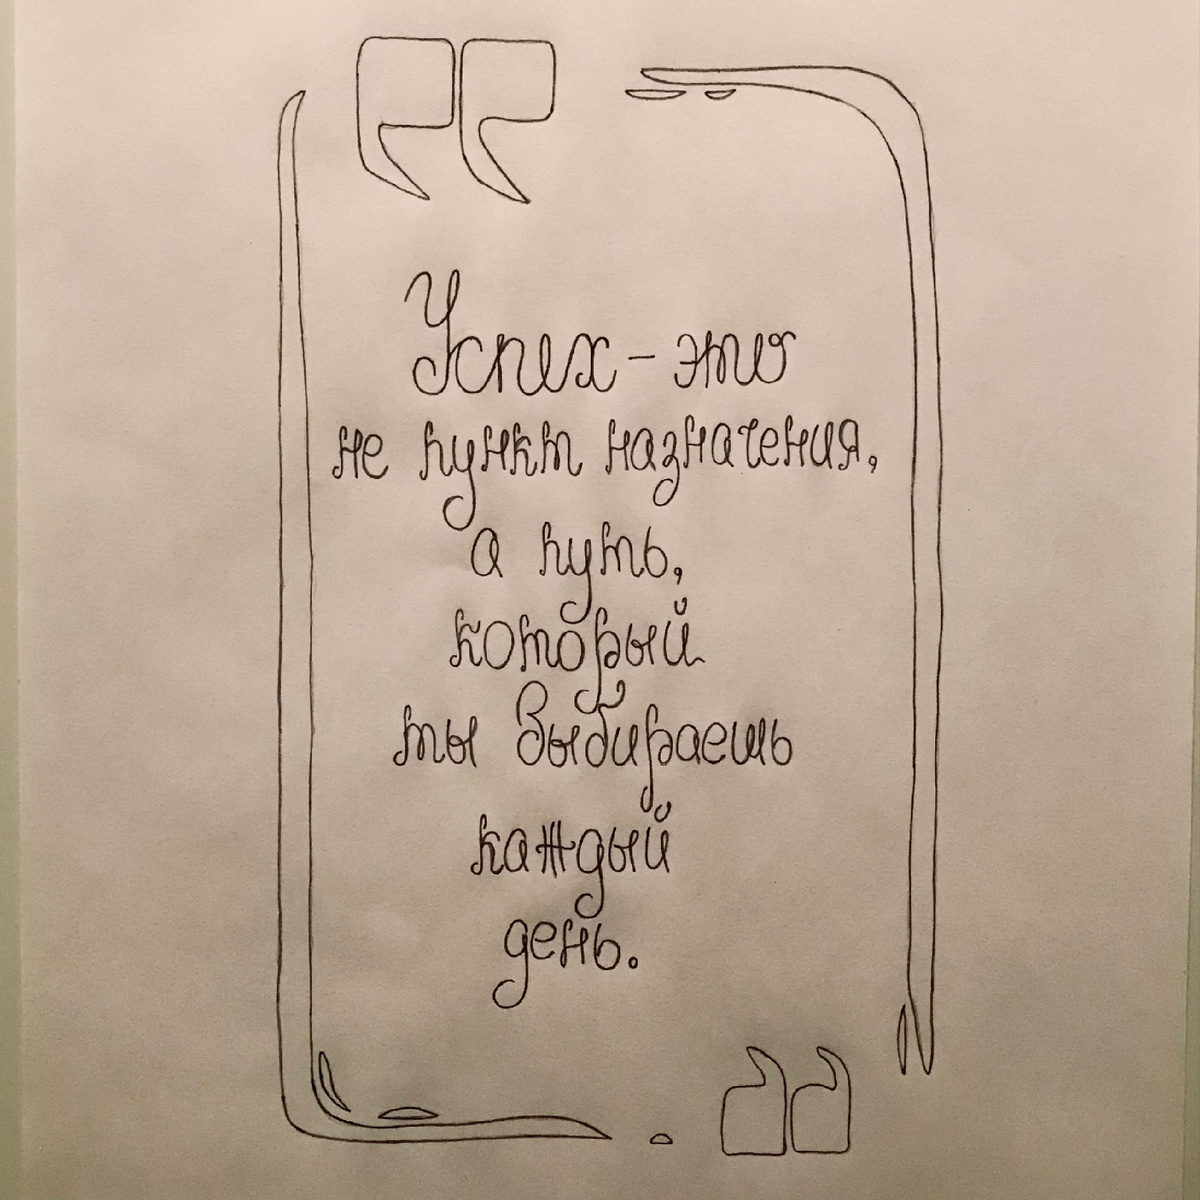 Успех - это
не пункт назначения,
а путь,
который
ты выбираешь
каждый
день.